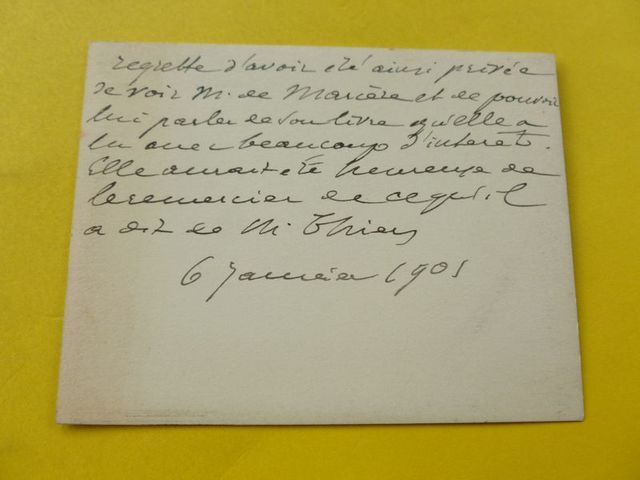 regrette d'avoir été ainsi privée
de voir M. de Marcère et de pouvoir
lui parler de son livre qu'elle a
lu avec beaucoup d'intérêt.
Elle aurait été heureuse de
le remercier de ce qu'il
a dit de M. Thiers
6 janvier 1901